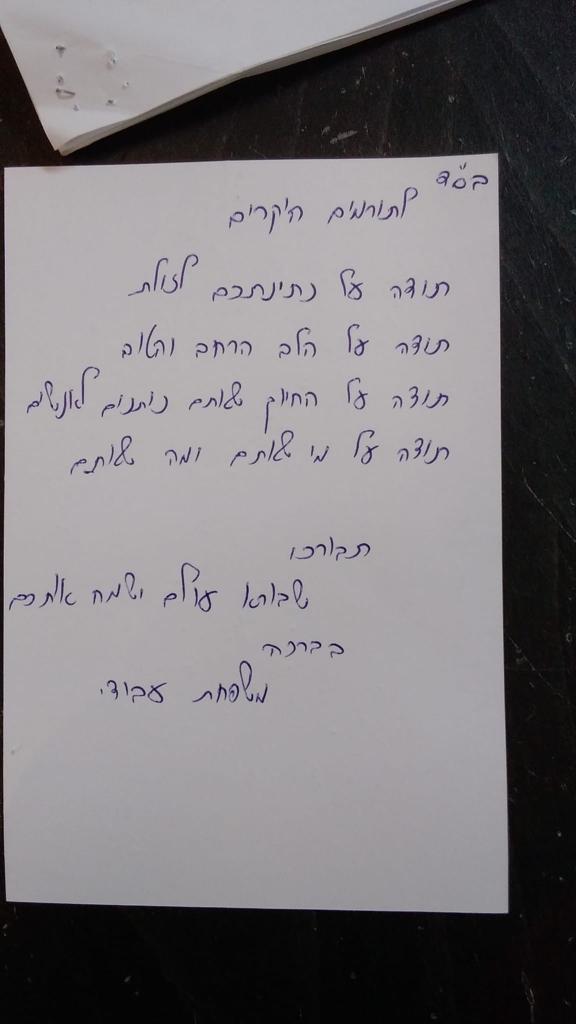 בס"ד
לתורמים היקרים
תודה על נתינתכם לזולת
תודה על הלב הרחב והטוב
תודה על החיוך שאתם נותנים לאנשים
תודה על מי שאתם ומה שאתם
תבורכו
שבורא עולם ישמח אתכם
בברכה
משפחת עבודי